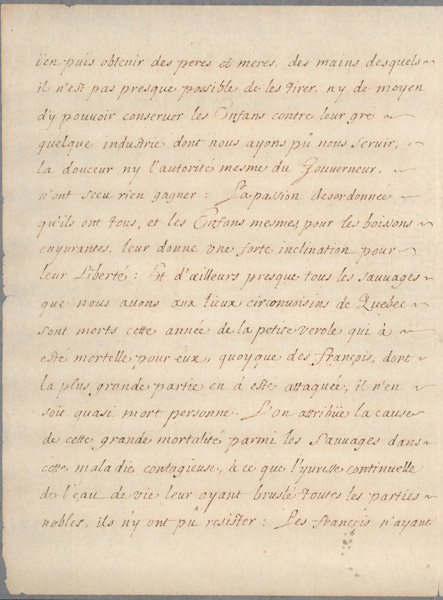 ïen puis obtenir des peres et meres, des mains desquels
il n'est pas presque possible de les tirer, ny de moyen
d'y pouvoir conserver les Enfans contre leur gre
quelque industrie dont nous ayons pû nous servir,
la douceur ny l'autorité mesme du Gouverneur,
n'ont sceu rien gagner : La passion desordonnée
qu'ils ont tous, et les Enfans mesmes pour les boissons
enyvrantes, leur donne une forte inclination pour
leur Liberté : Et d'ailleurs presque tous les sauvages
que nous avons aux lieux circonvoisins de Quebec
sont morts cette année de la petite verole qui à
esté mortelle pour eux, quoyque des françois, dont
la plus grande partie en à esté attaquée, il n'en
soit quasi mort personne. L'on attribüe la cause
de cette grande mortalité parmi les Sauvages dans
cette maladie contagieuse, à ce que l'yvresse continuelle
de l'eau de vie leur ayant bruslé toutes les parties
nobles, ils n'y ont pû resister : Les françois n'ayant